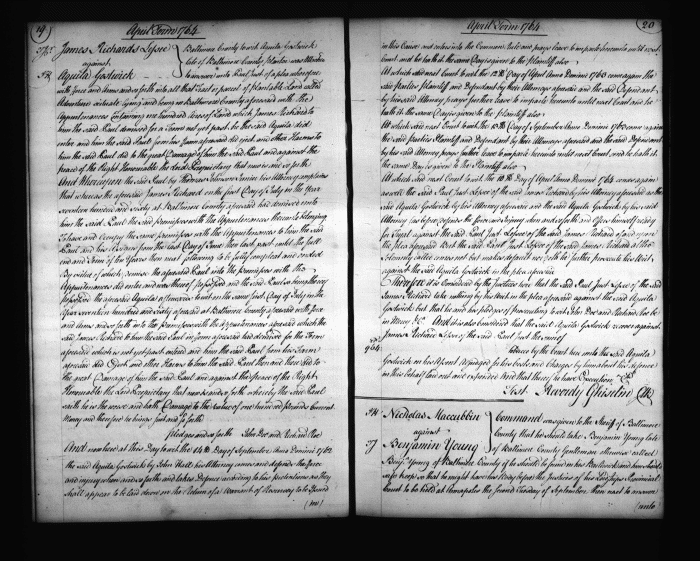 19
April Term 1764
James Richards Lessee
against
Aquila Gostwick
Baltimore County to wit Aquila Gostwick
late of Baltimore County Planter was attached
to answer unto Paul Just of a plea wherefore
with force and Arms and so forth into all that Tract or parcel of Arable Land called
lying and being in Baltimore County aforesaid with the
Appurtenances Containing one hundred Acres of Land which James Richard to
him the said Paul demised for a Term not yet past he the said Aquila did
enter and him the said Paul from his Farm aforesaid did eject and other Harms to
him the said Paul did to the great Damage of him the said Paul and against the
peace of the Right Honourable the Lord Proprietary that now is and so forth
And Whereupon the said Paul by Thomas Junior his Attorney complains
that whereas the aforesaid James Richard on the first Day of July in the year
seventeen hundred and sixty at Baltimore County aforesaid had demised unto
him the said Paul the said premises with the Appurtenances thereto belonging
To have and Occupy the same premises with the Appurtenances to him the said
Paul and his Assigns from the last Day of June then last past until the full
end and Term of ten Years then next following to be fully compleat and ended
By virtue of which demise the aforesaid Paul into the premises with the
Appurtenances did enter and was thereof possessed and the said Paul so being thereof
possessed the aforesaid Aquila afterwards to wit on the same first Day of July in the
Year seventeen hundred and sixty aforesaid at Baltimore County aforesaid with force
and Arms and so forth into the premises with the appurtenances aforesaid which the
said James Richard to him the said Paul in form aforesaid had demised for the Term
aforesaid which is not yet past entered and him the said Paul from his Farm
aforesaid did Eject and other Harms to him the said Paul then and there did to
the great Damage of him the said Paul and against the peace of the Right
Honourable the Lord Proprietary that now is and so forth whereby the said Paul
saith he is the worse and hath Damage to the value of one hundred Pounds Current
Money and therefore he brings suit and so forth
Pledges and so forth John Doe and Richard Roe
And now here at this Day to wit the 14th Day of September Anno Domini 1762
the said Aquila Gostwick by John Hall his Attorney comes and defends the force
and injury when and so forth and takes Defence according to his pretentions as they
shall appear to be laid down on the Return of a Warrant of Resurvey to be Issued
(in)
April Term 1764
20
in this Cause and enters into the Common Rule and prays leave to imparle hereunto until next
Court and he hath it the same Day is given to the Plaintiff also
At which said next Court to wit the Day of April Anno Domini 1763 come again the
said parties Plaintiff and Defendant by their Attorneys aforesaid and the said Defendant
by his said Attorney prays further leave to imparle hereunto until next Court and he
hath it the same Day is given to the Plaintiff also
At which said next Court to wit the 13th Day of September Anno Domini 1763 came again
the said parties Plaintiff and Defendant by their Attorneys aforesaid and the said Defendant
by his said Attorney prays further leave to imparle hereunto until next Court and he hath it
the same Day is given to the Plaintiff also
At which said next Court to wit the Day of April Anno Domini 1764 comes again
as well the said Paul Just Lessee of the said James Richard by his Attorney aforesaid as the
said Aquila Gostwick by his Attorney aforesaid and the said Aquila Gostwick by his said
Attorney as before defends the force and injury when and so forth and offers himself ready
for Tryal against the said Paul Just Lessee of the said James Richard of and upon
the plea aforesaid But the said Paul Just Lessee of the said James Richard altho
Solemnly called comes not but makes default nor doth he further prosecute his Writ
against the said Aquila Gostwick in the plea aforesaid
Therefore it is Considered by the Justices here that the said Paul Just Lessee of the said
James Richard take nothing by his Writ in the plea aforesaid against the said Aquila
Gostwick but that he and his pledges of Prosecuting to wit John Doe and Richard Roe be
in Mercy &c. And it is also Considered that the said Aquila Gostwick recover against
James Richard Lessor of the said Paul Just the sum of
964
by the Court here unto the said Aquila
Gostwick on his Assent Adjudged for his costs and Charges by him about his defence
in this behalf laid out and expended And that thereof he have Execution &c.
Test Reverdy Ghiselin Clk
Nicholas Maccubbin
against
Benjamin Young
Command was given to the Sheriff of Baltimore
County that he should take Benjamin Young late
of Baltimore County Gentleman otherwise called
Benj. Young of Baltimore County if he should be found in his Bailiwick and him should
safe keep so that he might have his Body before the Justices of his Lordships Provincial
Court to be held at Annapolis the second Tuesday of September then next to answer
(unto